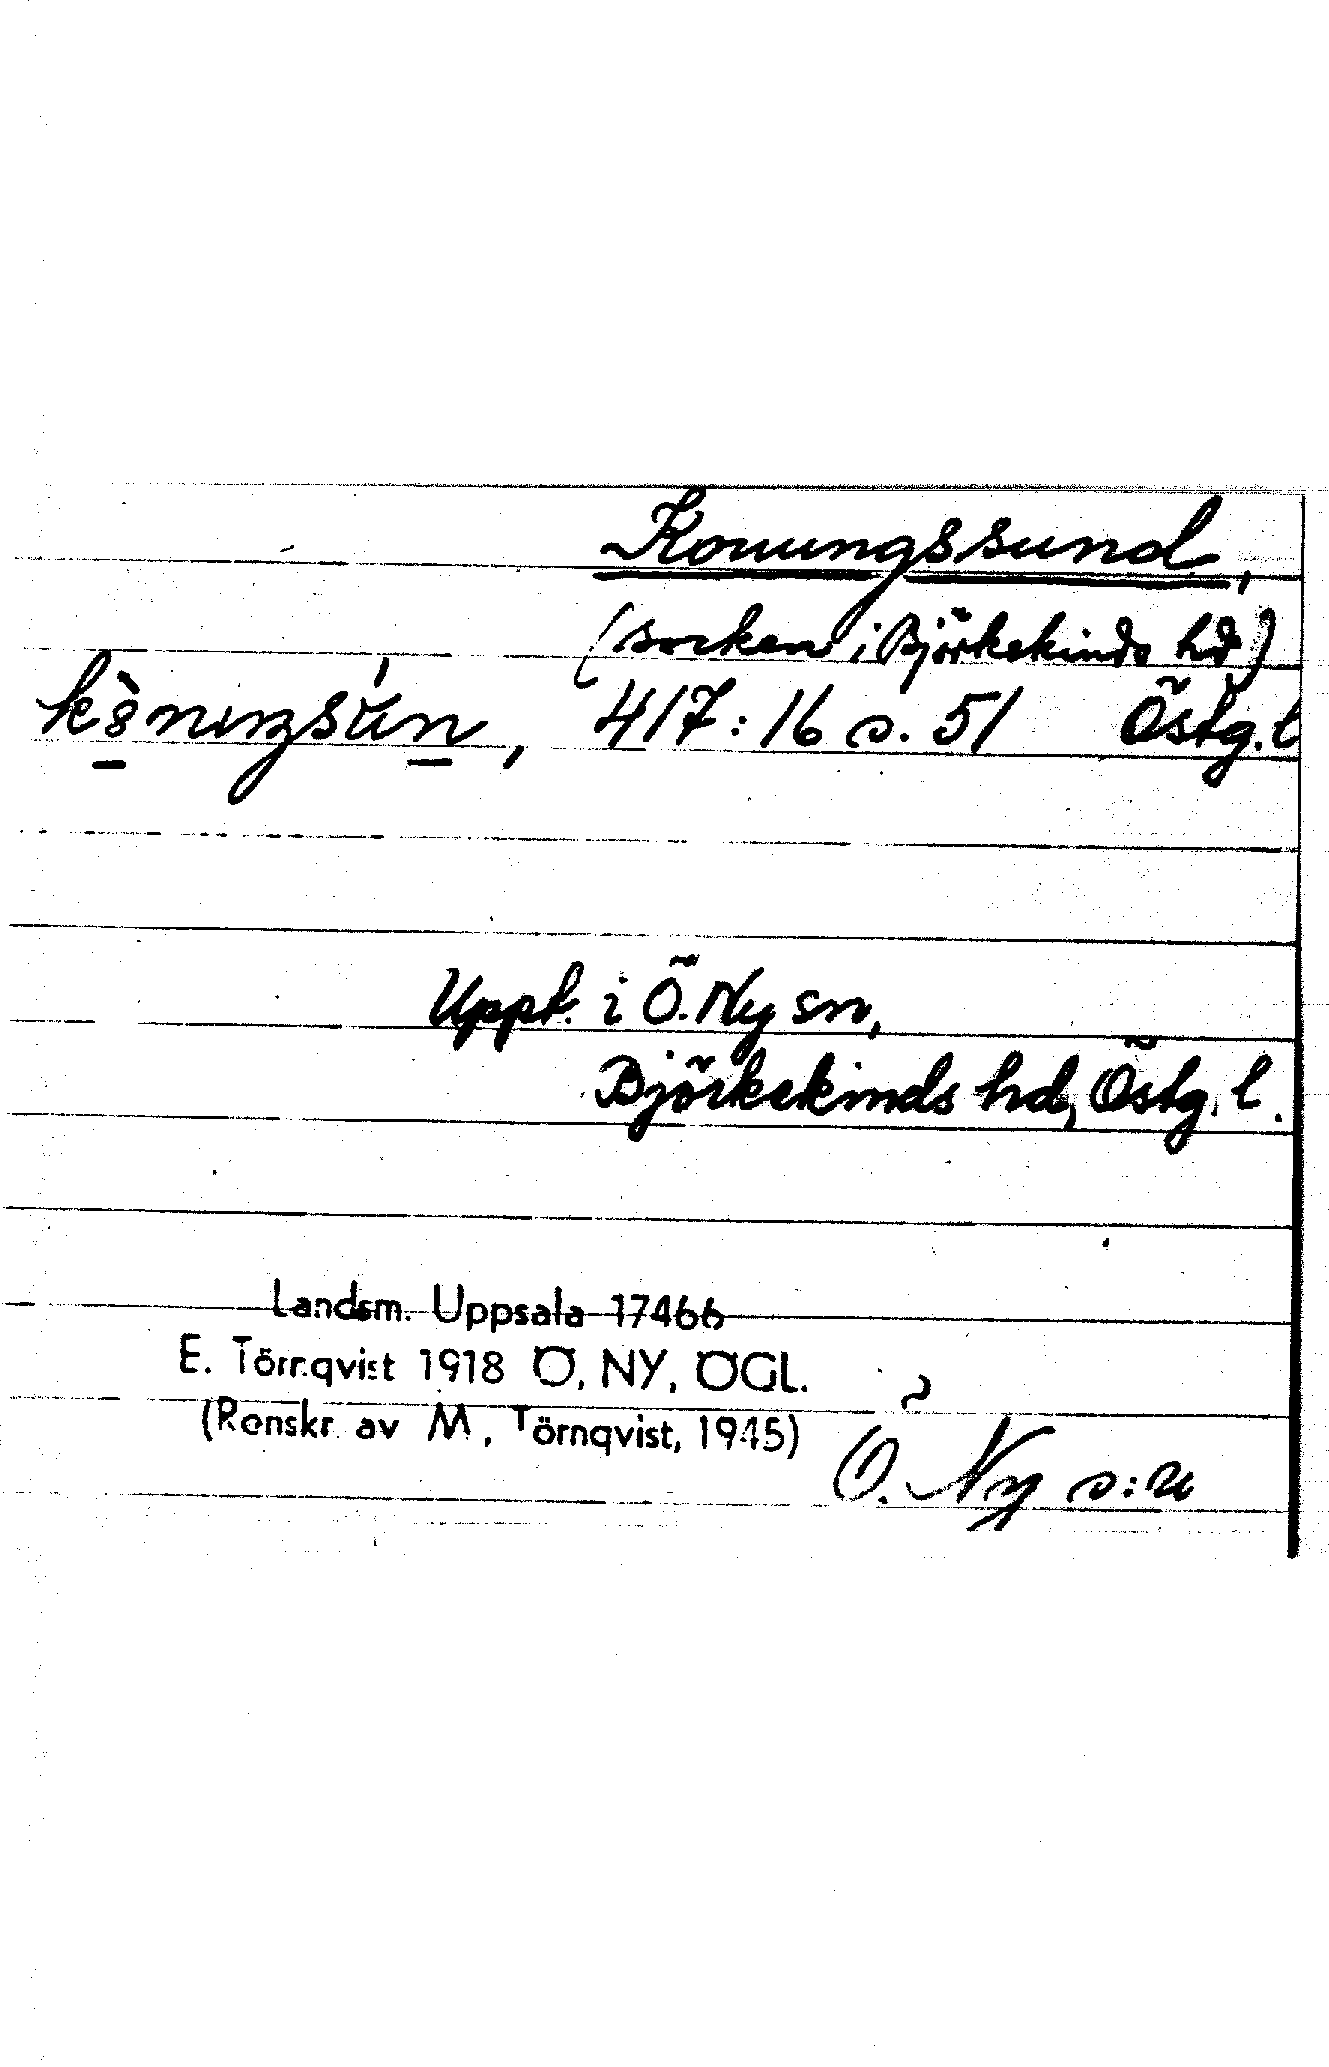 Konungssund,
(socken i Björkekinds hd)
417:16 s. 51 Östg. l
Uppt. i Ö. Ny sn,
Björkekinds hd, Östg. l.
Landsm. Uppsala 17466
E. Törnqvist 1918 Ö, NY, ÖGL.
(Renskr. av M, Törnqvist, 1945)
Ö. Ny s:n